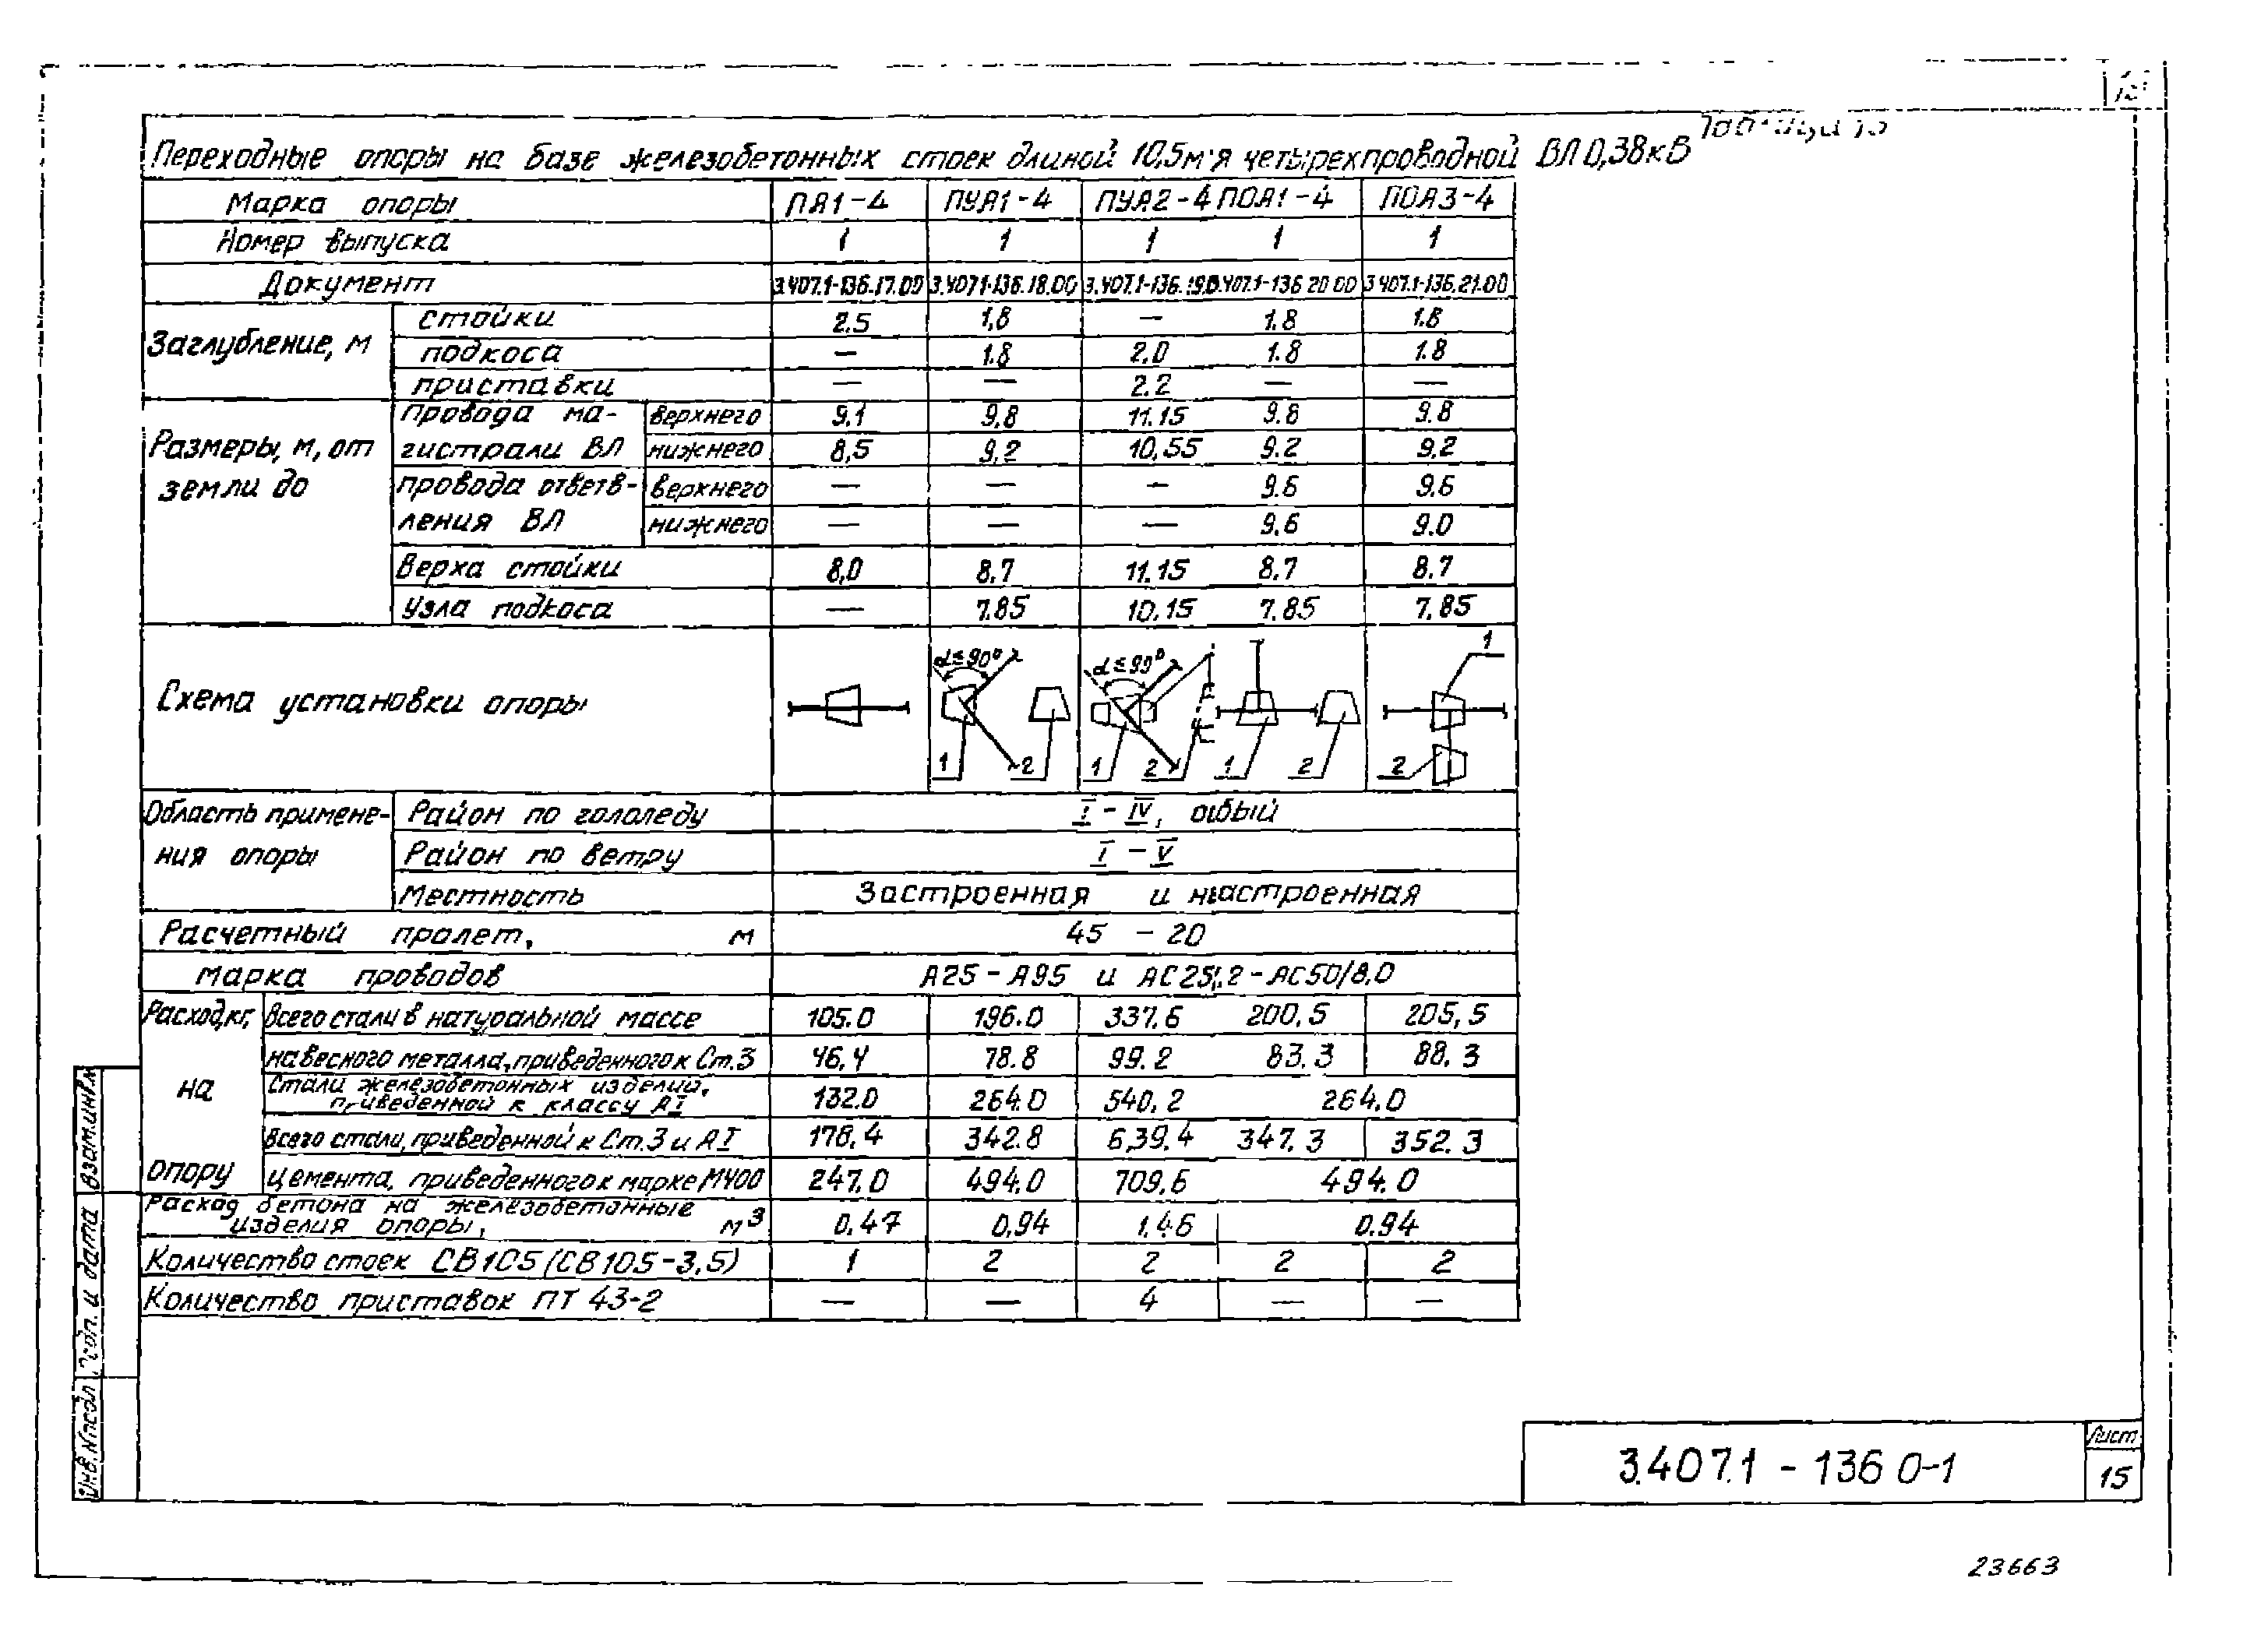 Переходные опоры на базе железобетонных стоек длиной 10,5м четырехпроводной ВЛ 0,38кВ
Марка опоры ПА1-4 ПУА1-4 ПУА2-4 ПОА1-4 ПОА3-4
Номер выпуска 1 1 1 1 1
Документ 3.407.1-136.17.00 3.407.1-136.18.00 3.407.1-136.19.0 3.407.1-136 20 00 3 407.1-136.21.00
Заглубление, м
стойки 2.5 1,8 — 1.8 1.8
подкоса — 1.8 2.0 1.8 1.8
приставки — — 2.2 — —
Размеры, м, от земли до
провода ма-
гистрали ВЛ
верхнего 9,1 9,8 11.15 9.8 9.8
нижнего 8,5 9,2 10,55 9.2 9,2
провода ответв-
ления ВЛ
верхнего — — — 9.6 9.6
нижнего — — — 9,6 9.0
Верха стойки 8,0 8.7 11.15 8.7 8.7
Узла подкоса — 7.85 10.15 7.85 7.85
Схема установки опоры
α≤90° 1 2
α≤90° 1 2
1 2
1 2
Область примене-
ния опоры
Район по гололеду I - IV, особый
Район по ветру I - V
Местность Застроенная и незастроенная
Расчетный пролет, м 45 - 20
Марка проводов А25-А95 и АС25/4.2-АС50/8.0
Расход, кг, на опору
Всего стали в натуральной массе 105.0 196.0 337.6 200,5 205,5
навесного металла, приведенного к Ст.3 46,4 78.8 99.2 83.3 88.3
Стали железобетонных изделий,
приведенной к классу АI 132.0 264.0 540.2 264.0
Всего стали, приведенной к Ст.3 и АI 178,4 342.8 639.4 347.3 352.3
Цемента, приведенного к марке М400 247.0 494.0 709.6 494.0
Расход бетона на железобетонные
изделия опоры, м³ 0,47 0,94 1,46 0.94
Количество стоек СВ105 (СВ105-3,5) 1 2 2 2 2
Количество приставок ПТ 43-2 — — 4 — —
Взам.инв.№
Подп. и дата
Инв.№подл.
3.407.1 - 136 0-1
Лист
15
23663